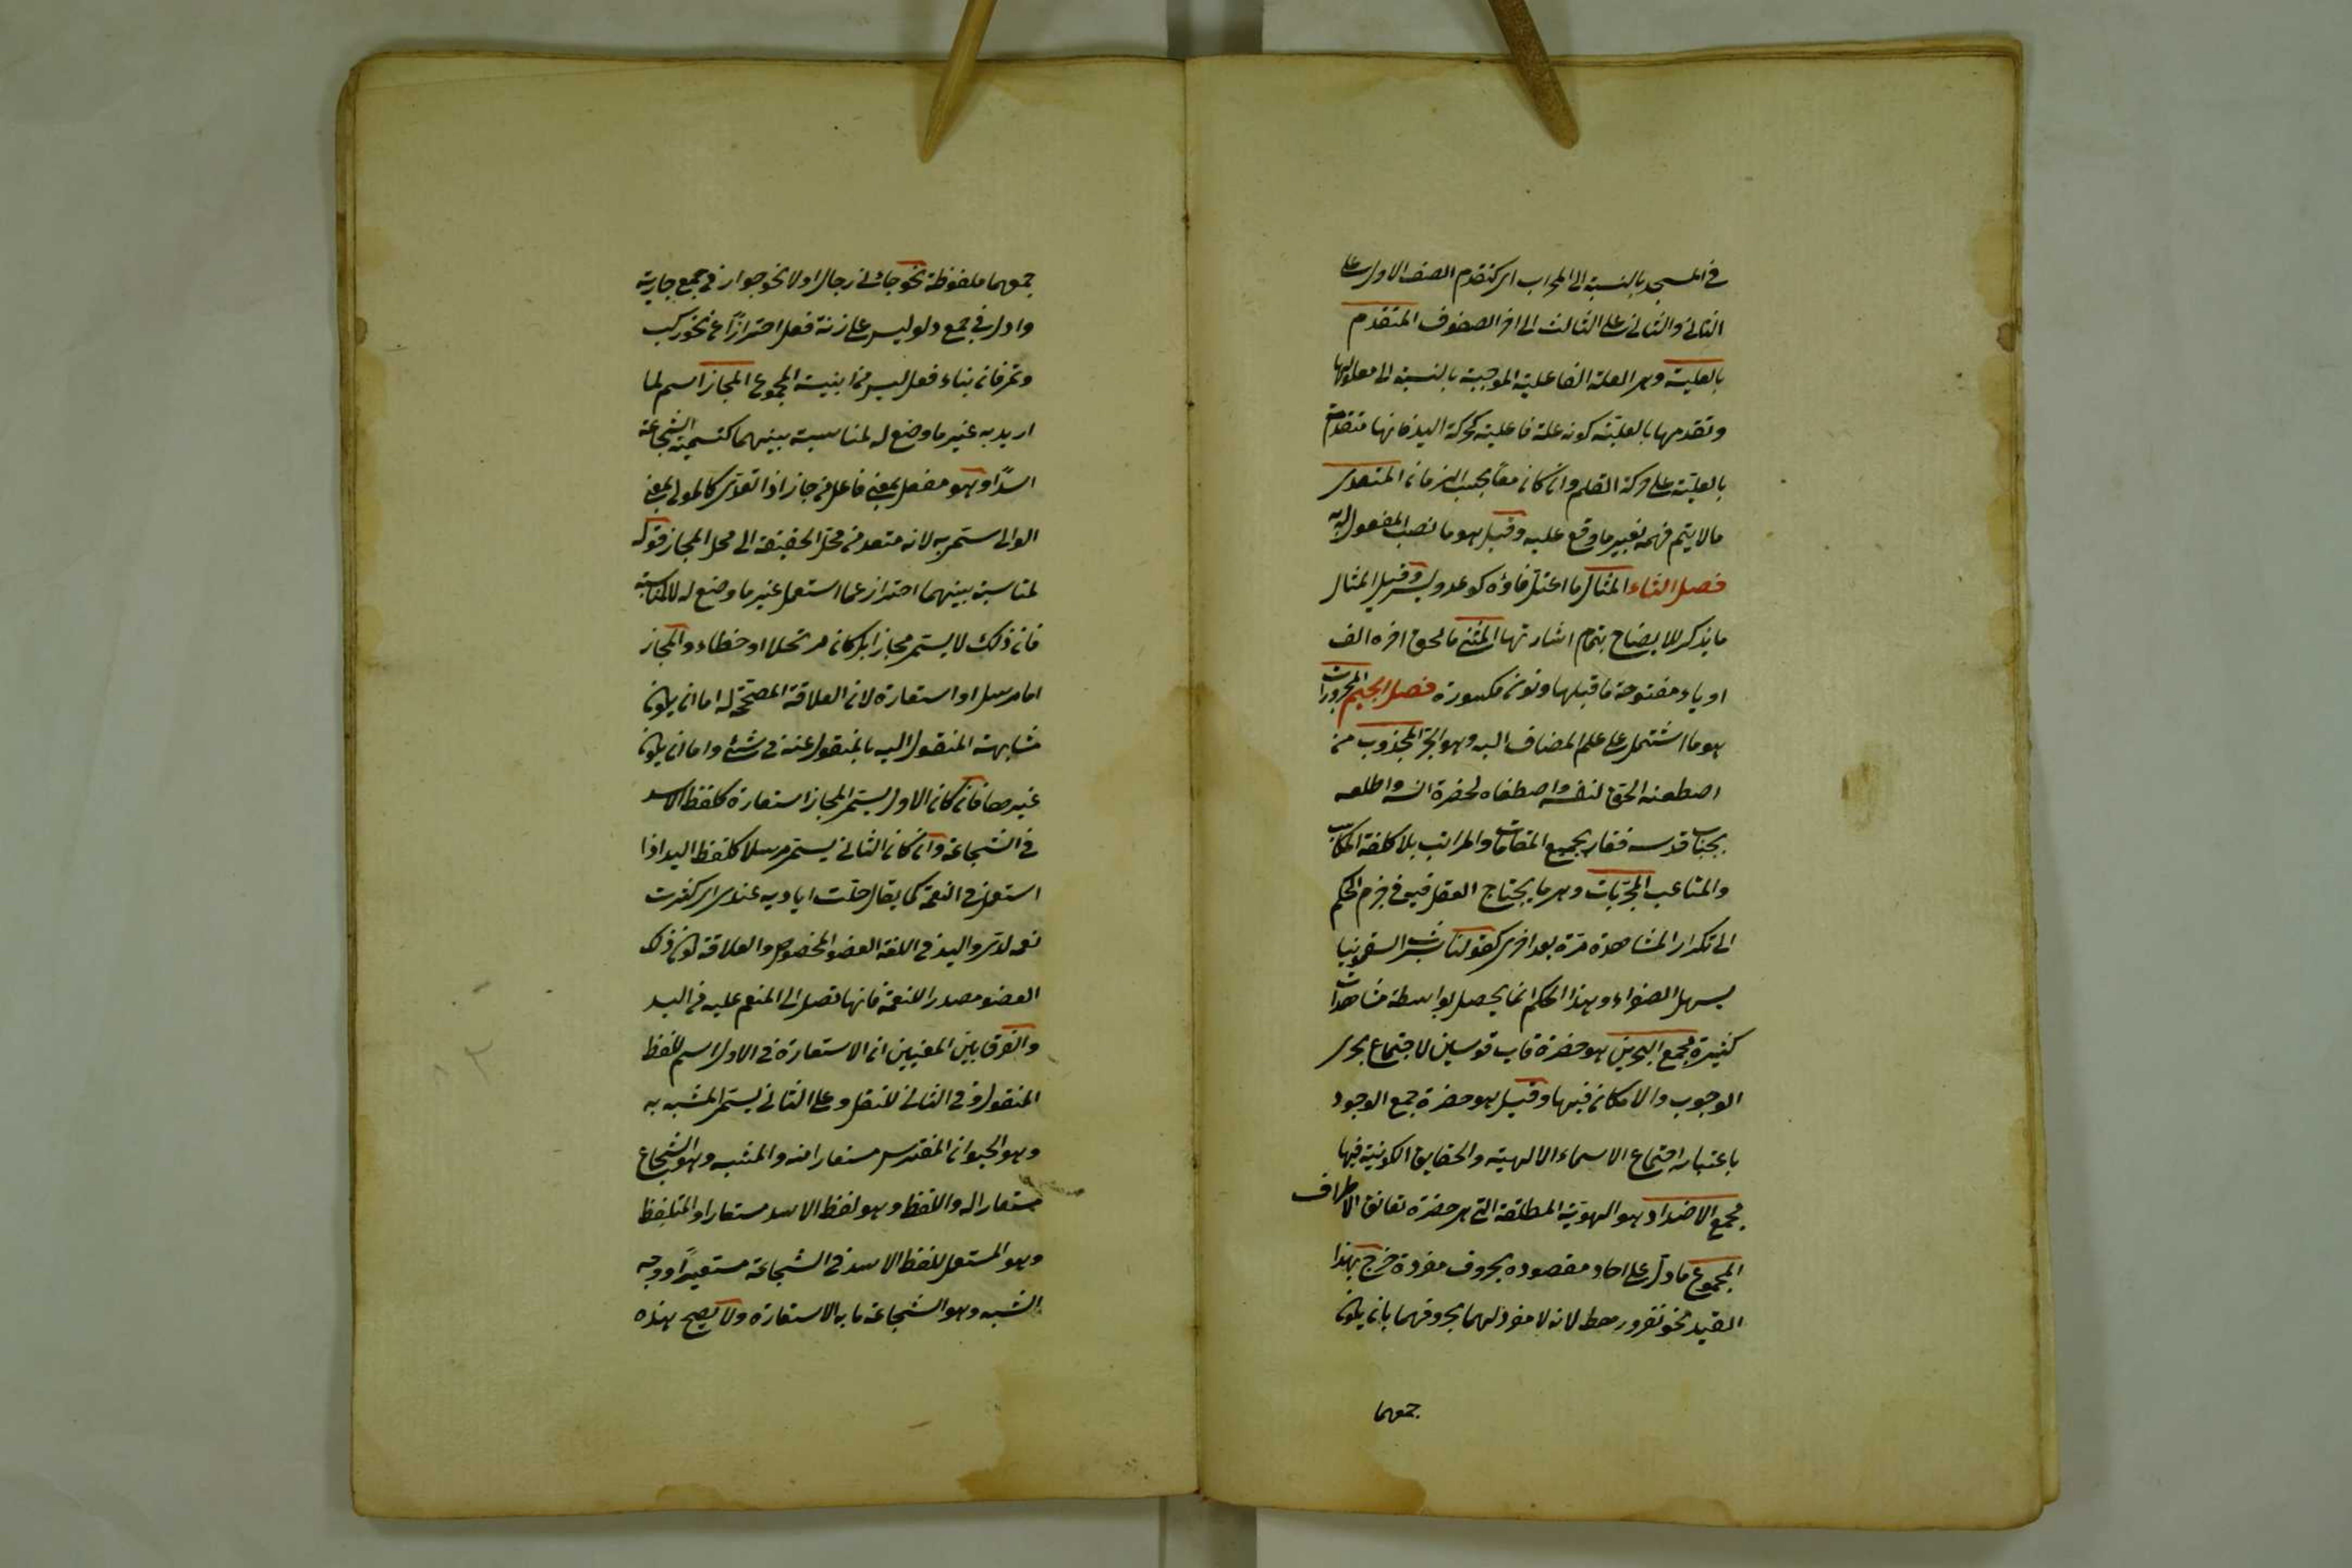 في المسجد بالنسبة الى المحراب اى كتقدم الصف الاول على
الثانى والثانى على الثالث الى اخر الصفوف المتقدم
بالعلية وهى العلة الفاعلية الموجبة بالنسبة الى معلولها
وتقدمها بالعلية كونه علة فاعلية كحركة اليد فانها متقدمة
بالعلية على حركة القلم وان كانا معا بحسب الزمان المتعدى
مالا يتم فهمه بغير ما وقع عليه وقيل هو ما نصب المفعول به
فصل الثاء المثال ما اعتل فاؤه كوعد ويسر وقيل المثال
ما يذكر للايضاح بتمام اشارتها المثنى ما لحق اخره الف
او ياء مفتوحة ما قبلها ونون مكسورة فصل الجيم المجرورات
هو ما اشتمل على علم المضاف اليه وهو الجر المجذوب من
اصطنعه الحق لنفسه واصطفاه لحضرة انسه واطلعه
بجناب قدسه ففاز بجميع المقامات والمراتب بلا كلفة المكاسب
والمتاعب المجربات وهى ما يحتاج العقل فيه فى جزم الحكم
الى تكرار المشاهدة مرة بعد اخرى كقولنا شرب السقمونيا
يسهل الصفراء وهذا الحكم انما يحصل بواسطة مشاهدات
كثيرة مجمع البحرين هو حضرة قاب قوسين لاجتماع بحرى
الوجوب والامكان فيها وقيل هو حضرة جمع الوجود
باعتبار اجتماع الاسماء الالهية والحقايق الكونية فيها
مجمع الاضداد هو الهوية المطلقة التى هى حضرة تعانق الاطراف
المجموع ما دل على احاد مقصودة بحروف مفردة خرج بهذا
القيد نحو نفر ورهط لانه لا مفرد لهما بحروفهما بان يكون
جمعهما
جمعهما ملفوظة نحو جائنى رجال اولا نحو جوار فى جمع جارية
وادل فى جمع دلو ليس على زنة فعل احترازا عن نحو ركب
وتمر فان بناء فعل ليس من ابنية الجموع المجاز اسم لما
اريد به غير ما وضع له لمناسبة بينهما كتسمية الشجاع
اسدا وهو مفعل بمعنى فاعل من جاز اذا تعدى كالمولى بمعنى
الوالى سمى به لانه متعد من محل الحقيقة الى محل المجاز قوله
لمناسبة بينهما احتراز عما استعمل غير ما وضع له لا لمناسبة
فان ذلك لا يسمى مجازا بل كان مرتجلا او خطاء والمجاز
اما مرسل او استعارة لان العلاقة المصححة له اما ان يكون
مشابهة المنقول اليه بالمنقول عنه فى شئ واما ان يكون
غيرها فان كان الاول يسمى المجاز استعارة كلفظ الاسد
فى الشجاعة وان كان الثانى يسمى مرسلا كلفظ اليد اذا
استعمل فى النعمة كما يقال جلت اياديه عندى اى كثرت
نعمه لدى واليد فى اللغة العضو المخصوص والعلاقة كون ذلك
العضو مصدر للنعمة فانها تصل الى المنعم عليه من اليد
والفرق بين المعنيين ان الاستعارة فى الاول اسم للفظ
المنقول وفى الثانى للنقل وعلى الثانى يسمى المشبه به
وهو الحيوان المفترس مستعارا منه والمشبه وهو الشجاع
مستعارا له واللفظ وهو لفظ الاسد مستعارا والمتلفظ
وهو المستعمل للفظ الاسد فى الشجاعة مستعيرا ووجه
الشبه وهو الشجاعة ما به الاستعارة ولا يصح هذه